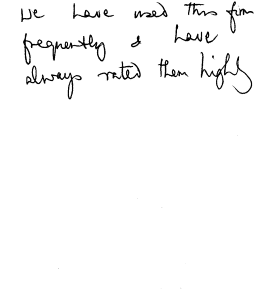 We have used this firm
frequently & have
always rated them highly